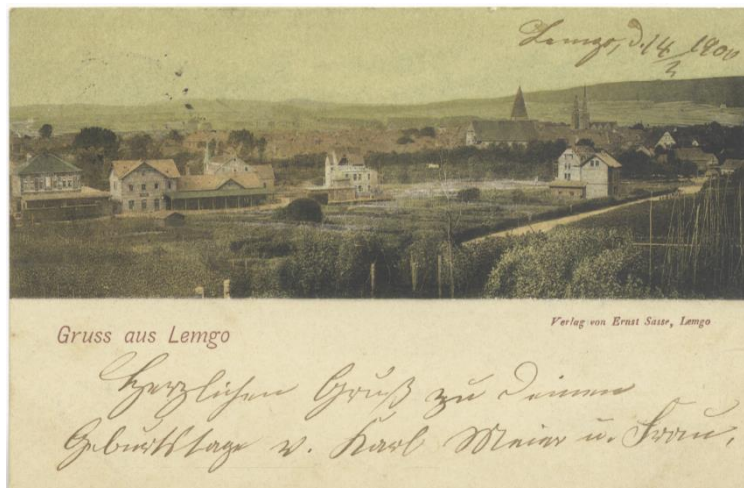 Lemgo, d. 14/2 1900
Gruss aus Lemgo
Verlag von Ernst Sasse, Lemgo
Herzlichen Gruß zu Deinem
Geburtstage v. Karl Meier u. Frau.